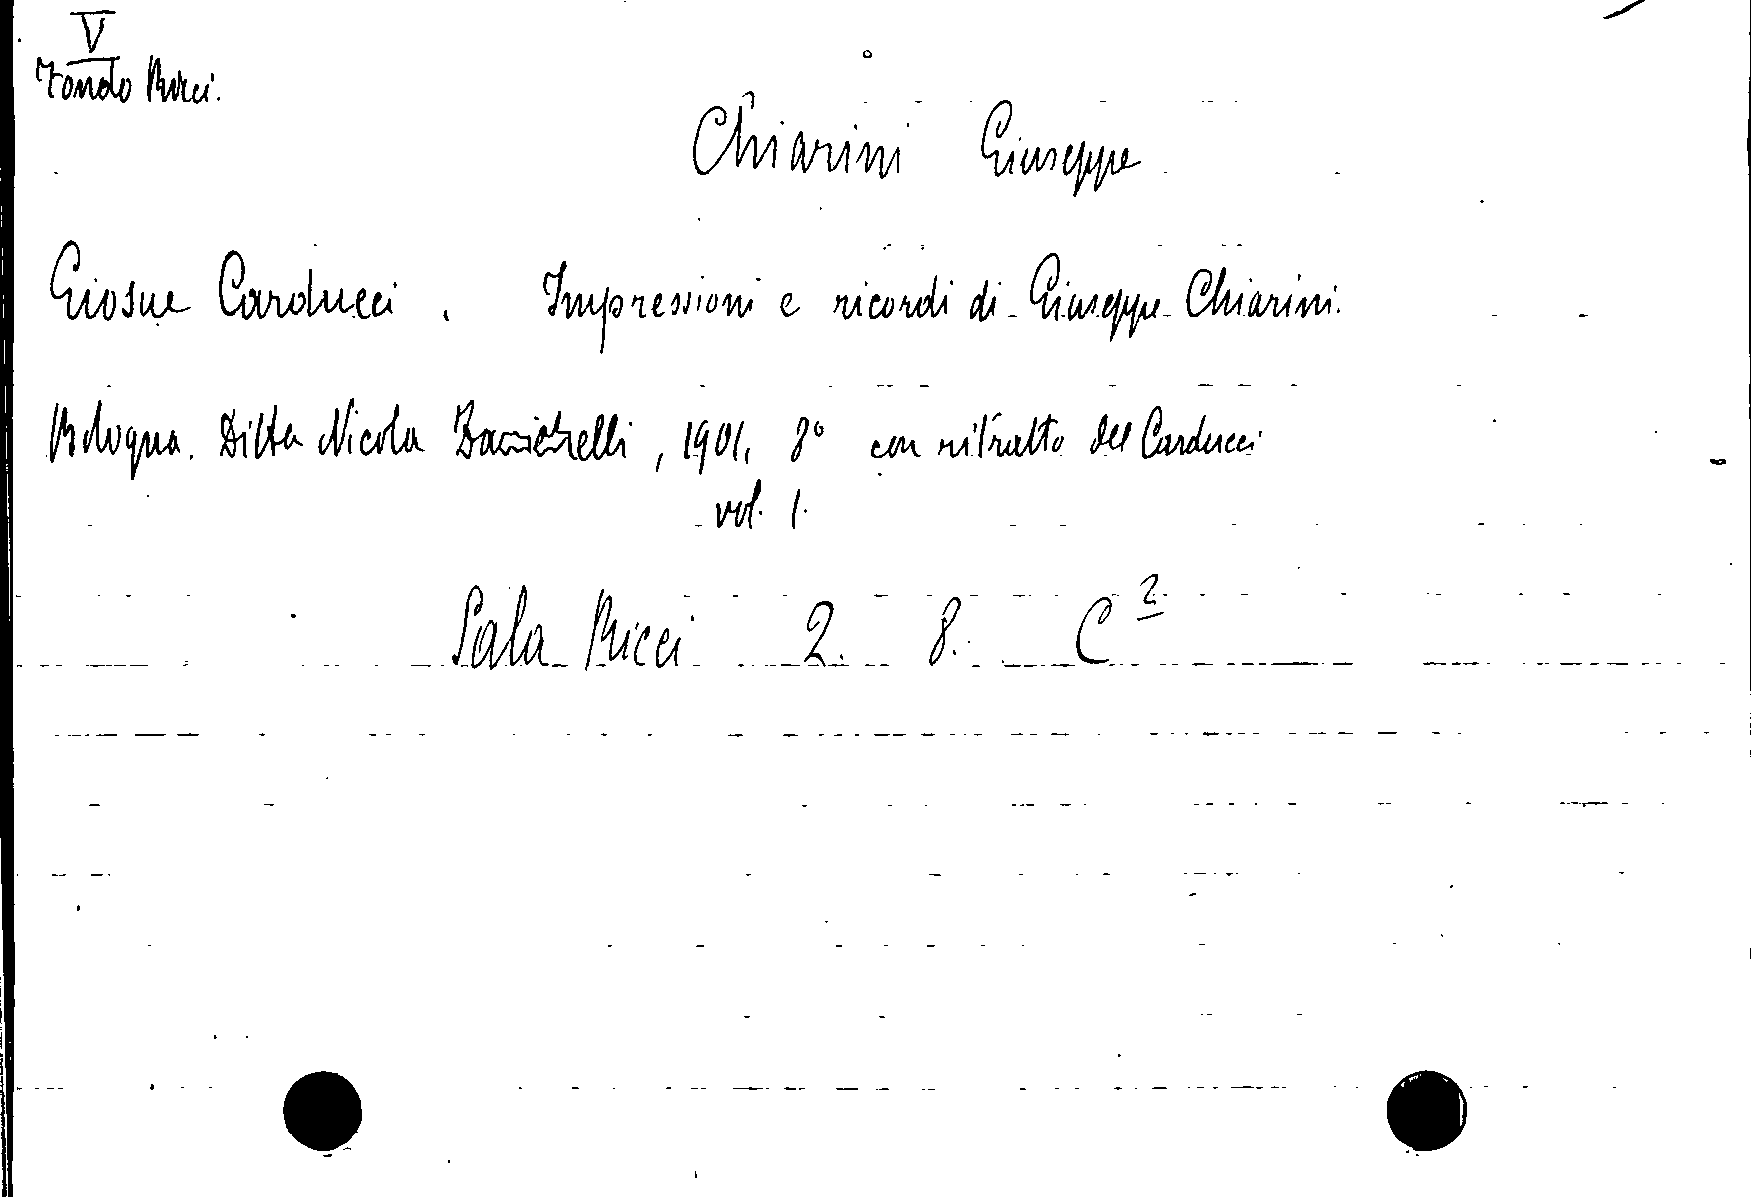 V
Fondo Ricci.
Chiarini Giuseppe
Giosue Carducci. Impressioni e ricordi di Giuseppe Chiarini.
Bologna. Ditta Nicola Zanichelli, 1901, 8° con ritratto del Carducci
vol. 1.
Sala Ricci 2. 8. C 2